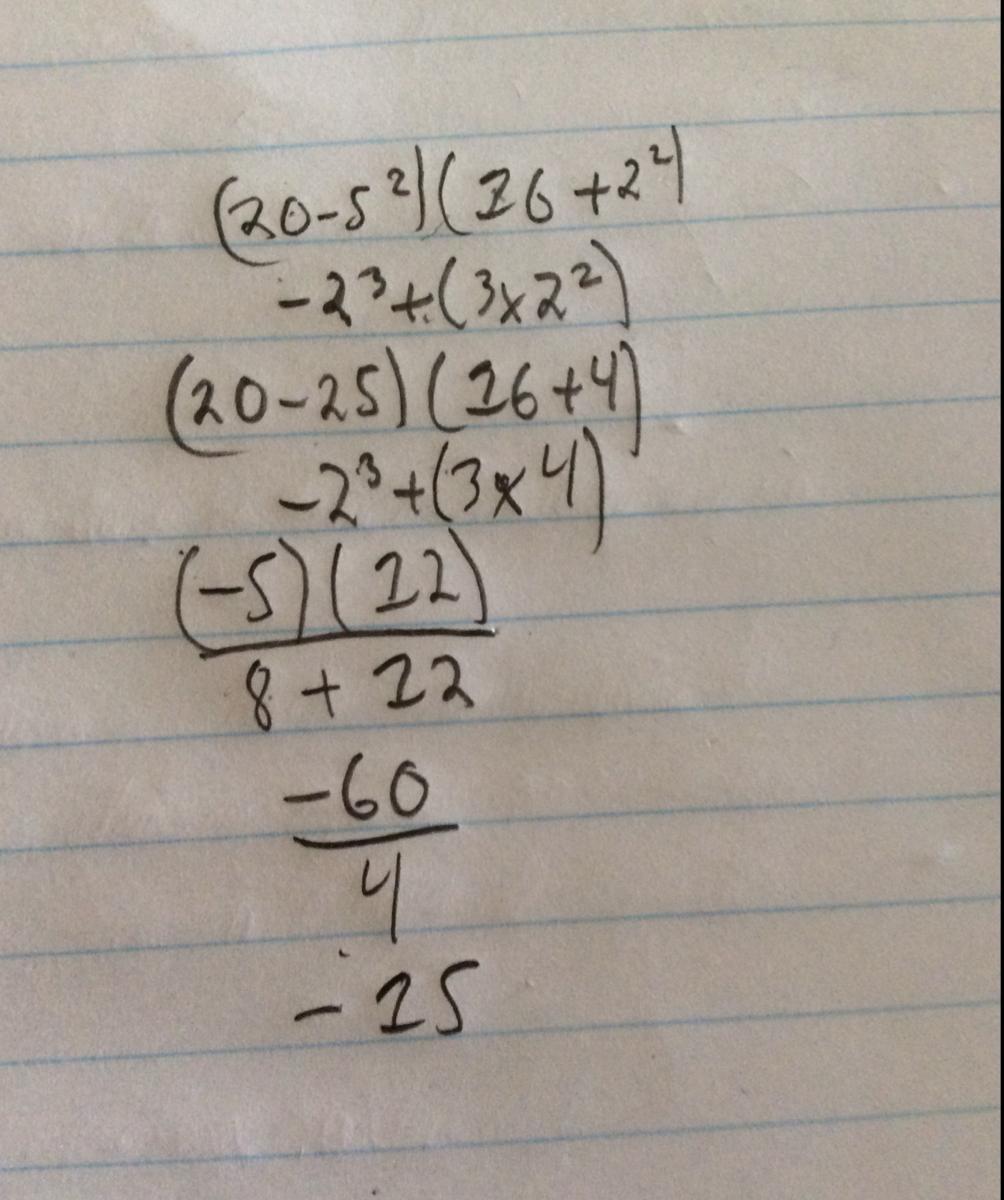 (20-5²)(16+2²)
-2³+(3×2²)
(20-25)(16+4)
-2³+(3×4)
(-5)(12)
8+12
-60
4
-15